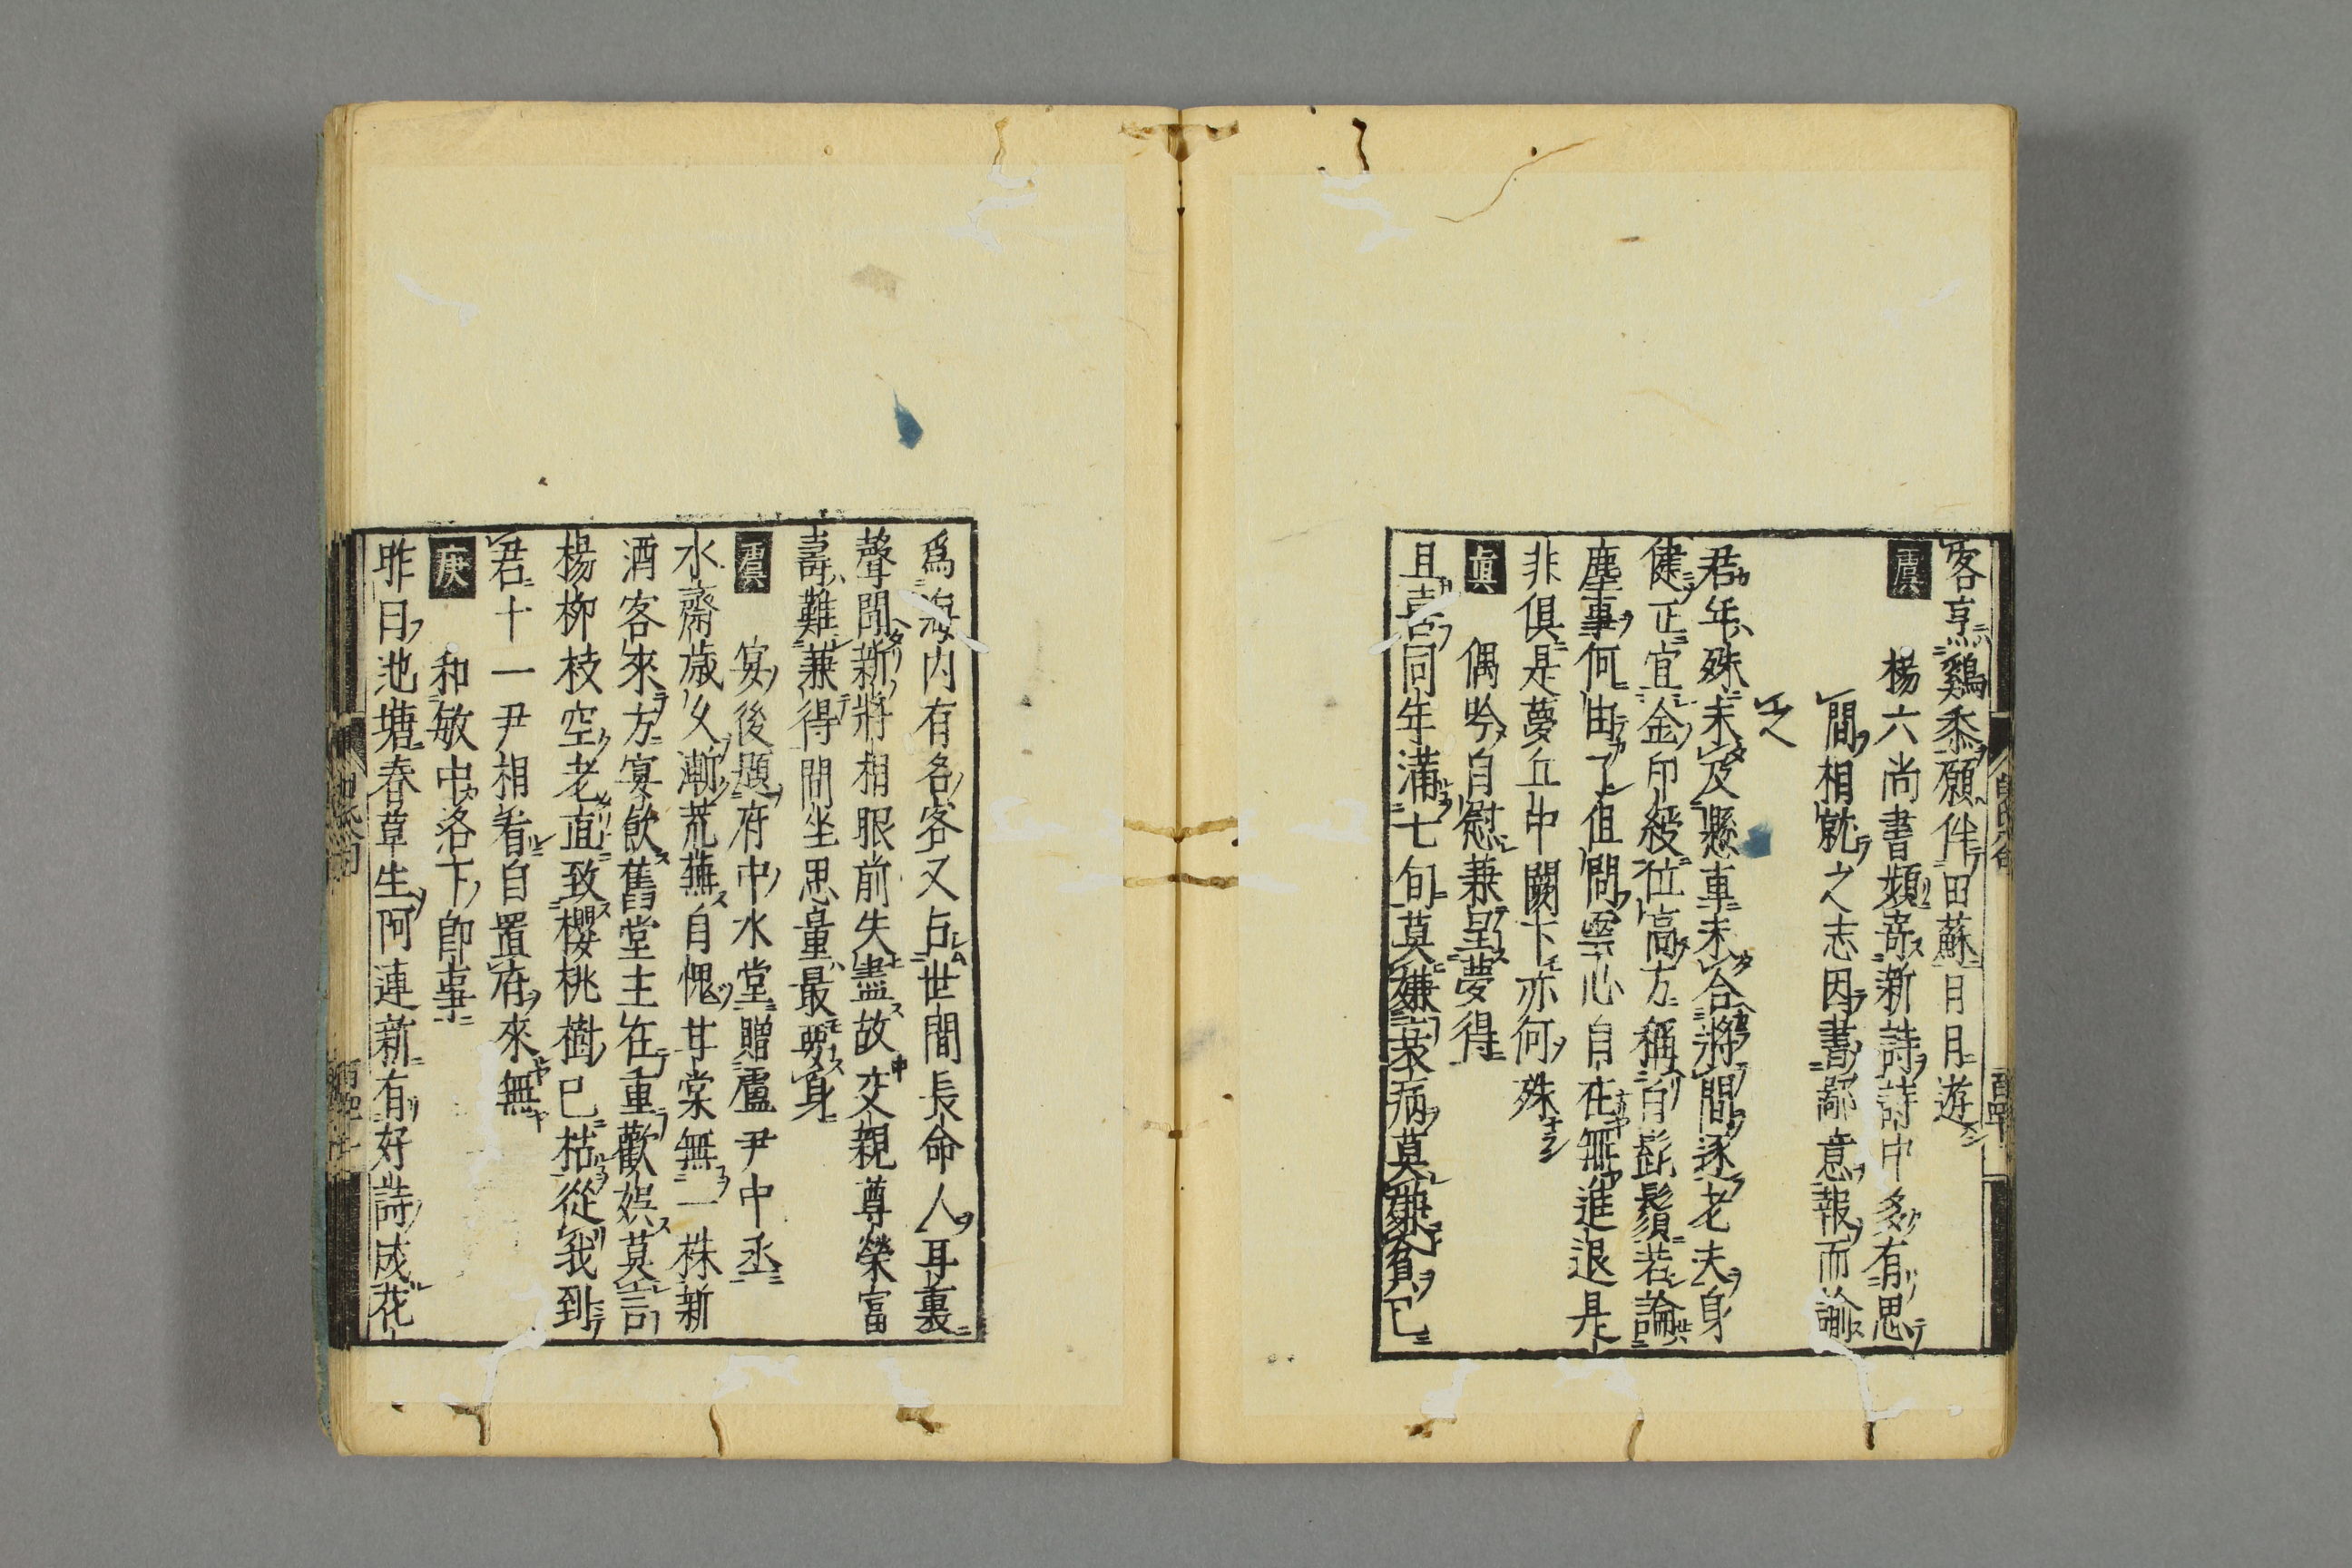 客烹鷄黍願伴田蘇日月遊
虞 楊六尚書頻寄新詩詩中多有思
閒相就之志因書鄙意報而諭
之
君年殊未及懸車未合將閒逐老夫身
健正宜金印綬位高方稱白髭鬚若論
塵事何由了但問雲心自在無進退是
非俱是夢丘中闕下亦何殊
眞 偶吟自慰兼呈夢得
且喜同年滿七旬莫嫌衰病莫嫌貧已
爲海内有名客又占世間長命人耳裏
聲聞新將相眼前失盡故交親尊榮富
壽難兼得閒坐思量最要身
虞 宴後題府中水堂贈盧尹中丞
水齋歳久漸荒蕪自愧甘棠無一株新
酒客來方宴飲舊堂主在重歡娯莫言
楊柳枝空老直致櫻桃樹已枯從我到
君十一尹相看自置府來無
庚 和敏中洛下即事
昨日池塘春草生阿連新有好詩成花